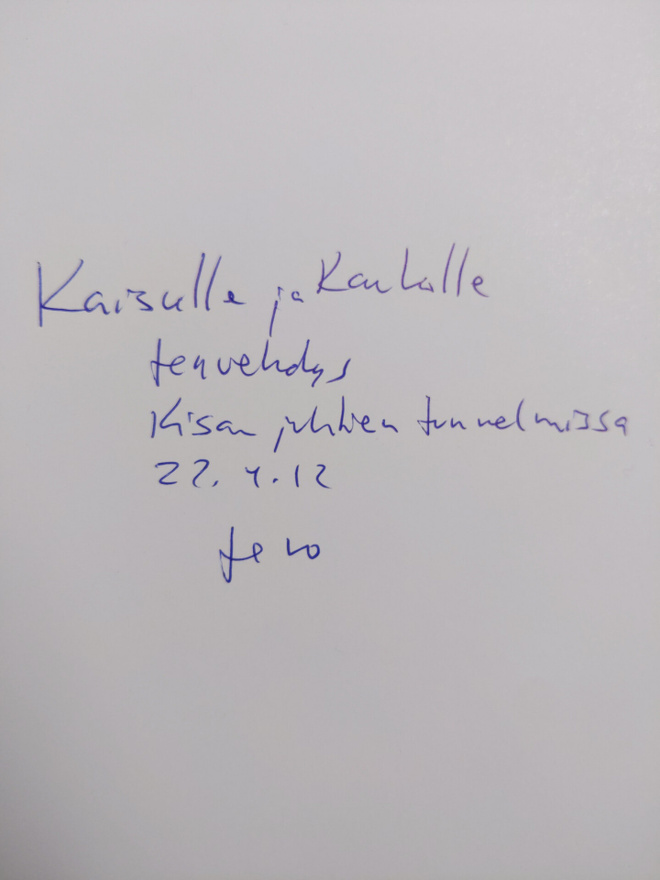 Kaisulle ja Kaukolle
tervehdys
Kisan juhlien tunnelmissa
22.4.12
Tero